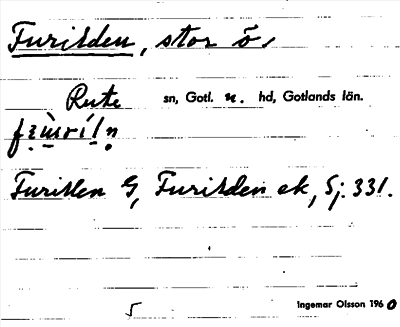 Furilden, stor ö,
Rute sn, Gotl. n. hd, Gotlands län.
Furillen G, Furilden ek, Sj. 331.
Ingemar Olsson 1960
5